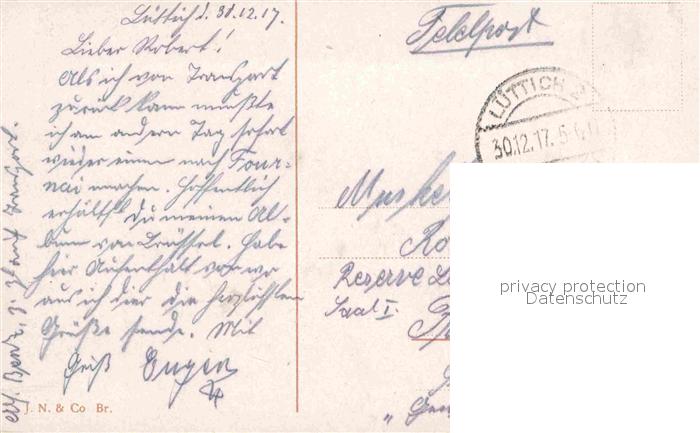 Lüttich d. 30.12.17.
Lieber Robert!
Als ich von Transport
zurück kam mußte
ich am andern Tag sofort
wieder einen nach Tour-
nai machen. Hoffentlich
erhältst du meinen Al-
bum von Brüssel. Habe
hier Aufenthalt von wo
aus ich dir die herzlichsten
Grüße sende. Mit
Gruß Eugen
J. N. & Co Br.
Feldpost
LÜTTICH 2
30.12.17. 5-6
Musket
Ro
Reserve La
Saal I.
privacy protection
Datenschutz